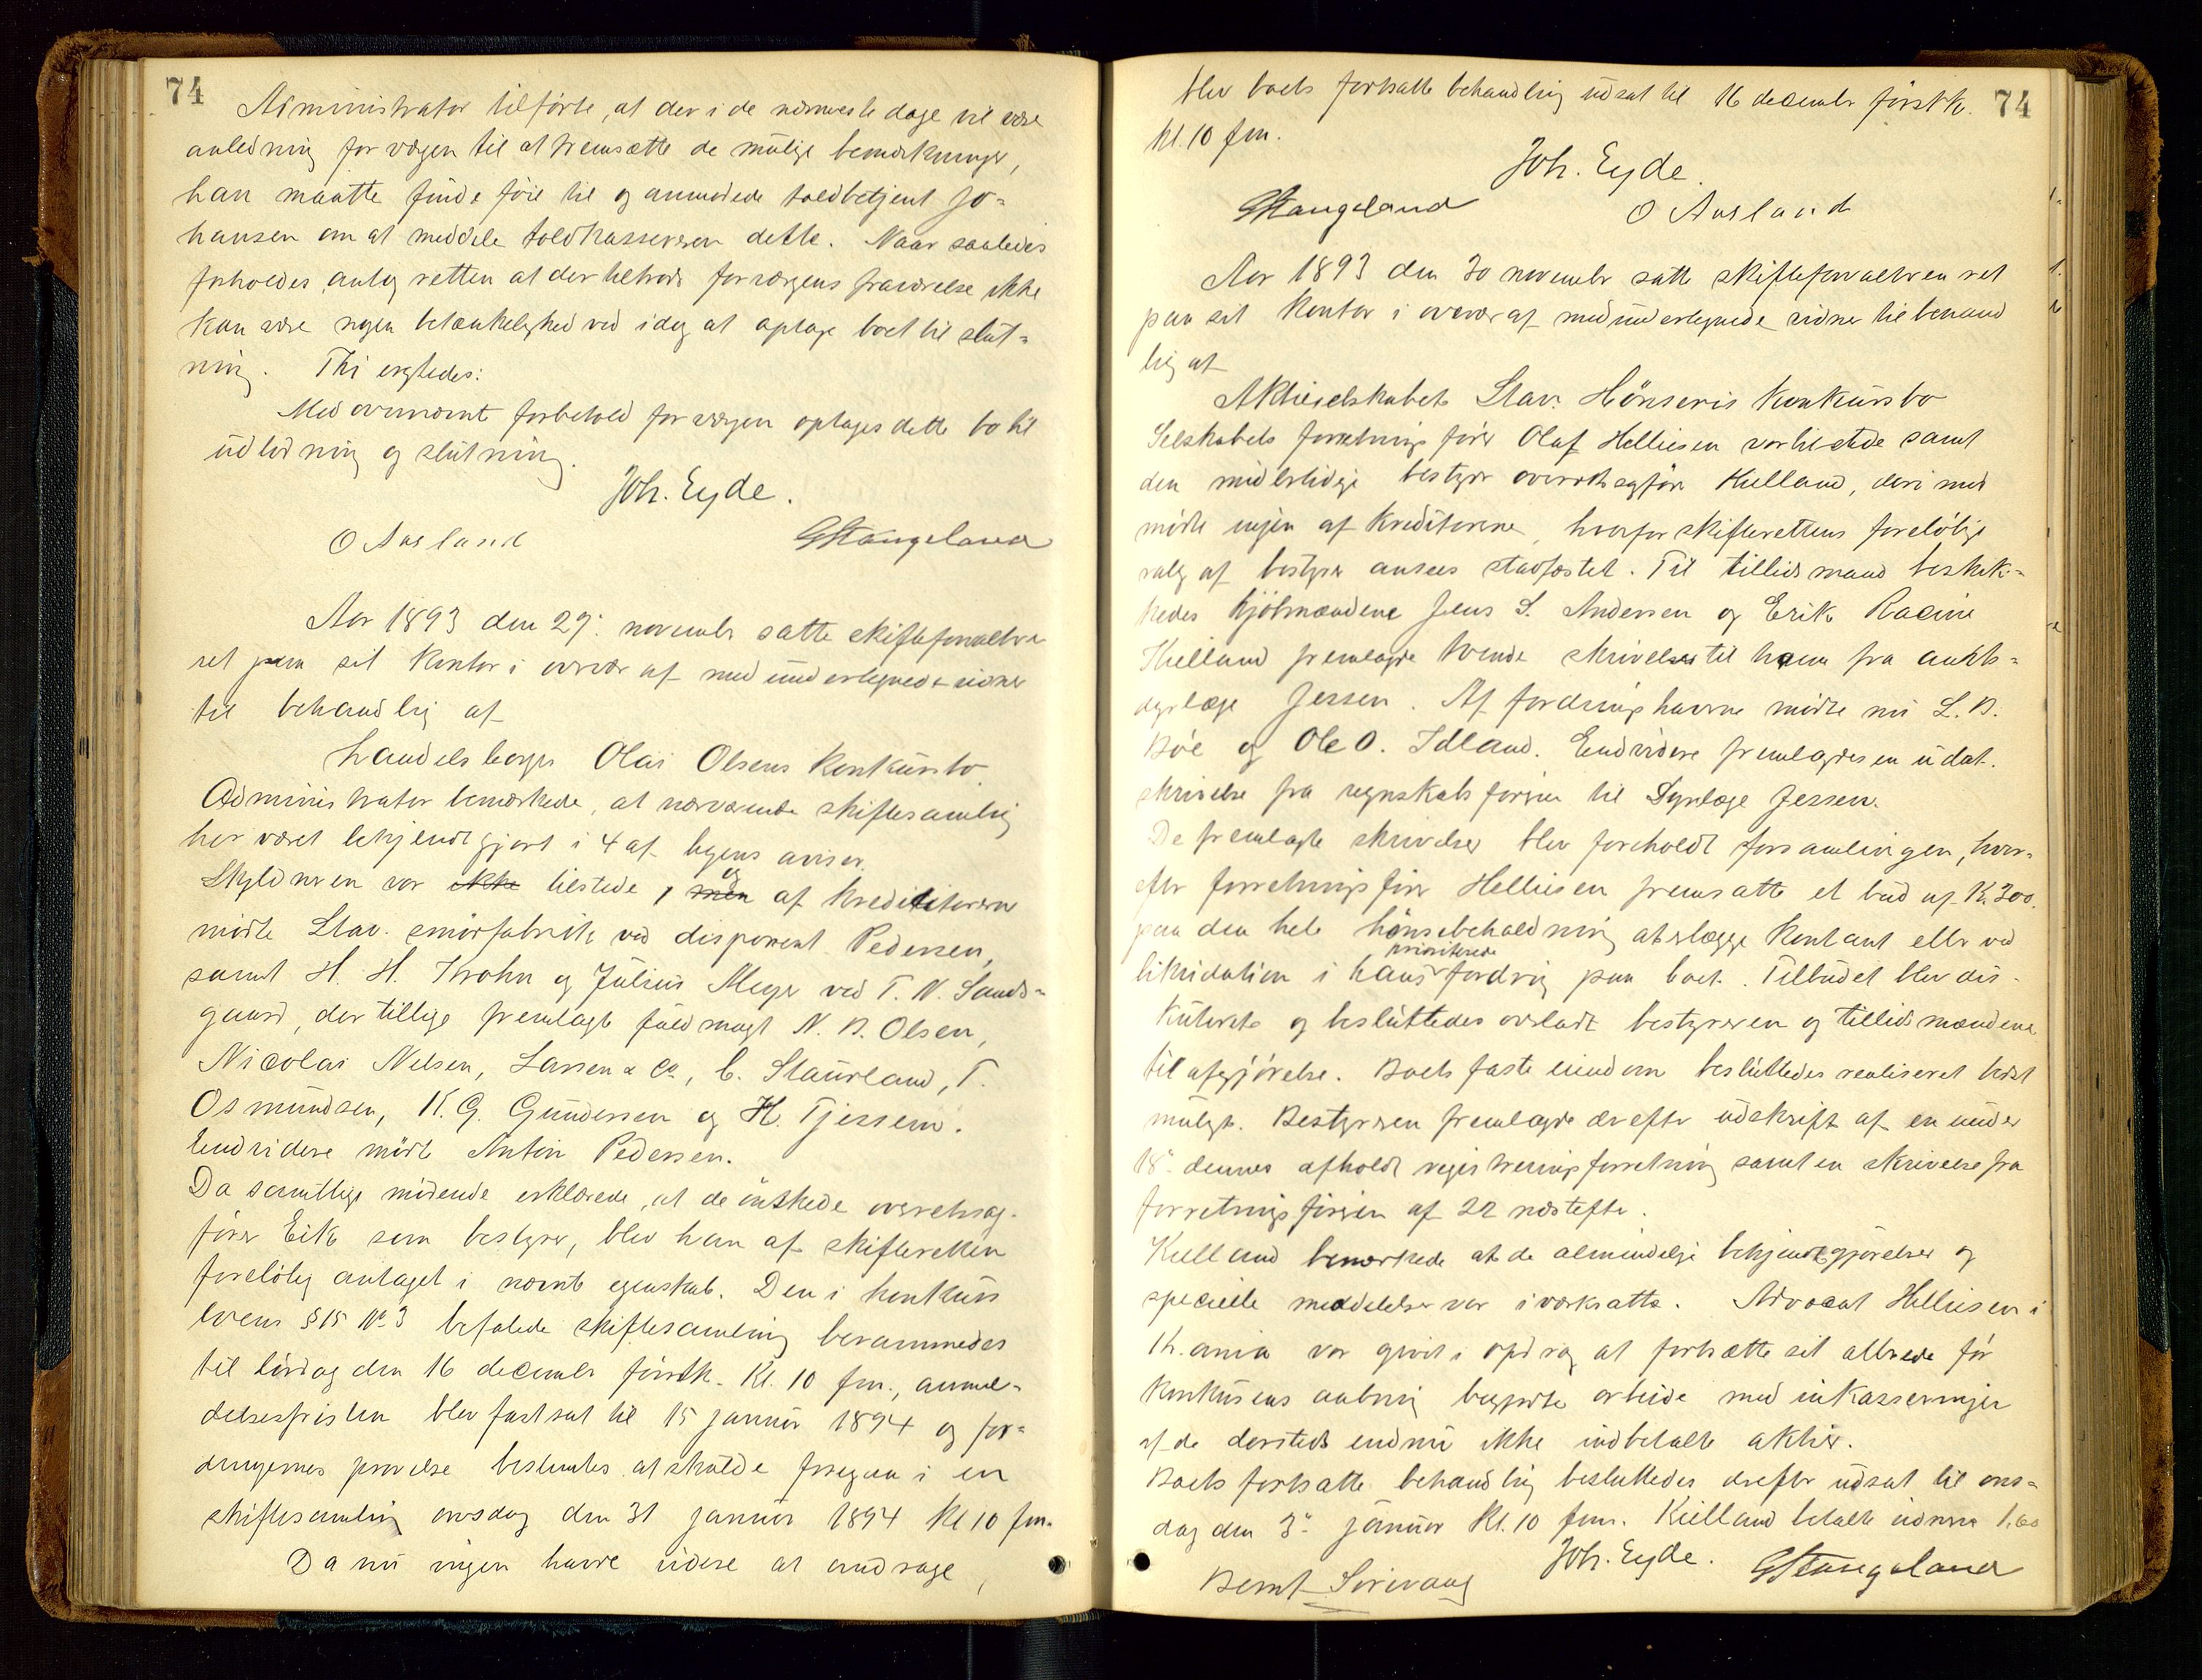 74
Administrator tilförte, at der i de nærmeste dage vil være
anledning for værgen til at fremsætte de mulige bemærkninger,
han maatte finde föie til og anmodede toldbetjent Jo-
hansen om at meddele toldkassereren dette. Naar saaledes
forholdes, antog retten at der tiltrods for værgens fraværelse ikke
kan være nogen betænkelighed ved idag at optage boet til slut-
ning. Thi eragtedes:
Med ovennævnt forbehold for værgen optages dette bo til
udlodning og slutning.
Joh. Eyde.
O Aasland GStangeland
Aar 1893 den 29. novembr satte skifteforvalteren
ret paa sit kontor i overvær af medundertegnede vidner
til behandlig af
handelsborger Olai Olsens konkursbo.
Administrator bemærkede, at nærværende skiftesamling
har været bekjendtgjort i 4 af byens aviser.
Skyldneren var ikke tilstede, men og af kredititorerne
mödte Stav. smörfabrik ved disponent Pedersen,
samt H. H. Krohn og Julius Meyer ved T. N. Sands-
gaard, der tillige fremlagde fuldmagt N. B. Olsen,
Nicolai Nelsen, Lassen & Co, C. Staurland, T.
Osmundsen, K. G. Gundersen og H. Tjessem.
Endvidere mödte Anton Pedersen.
Da samtlige mödende erklærede, at de önskede overretssag-
förer Eik som bestyrer, blev han af skifteretten
forelöbig antaget i nævnte egenskab. Den i konkurs
lovens § 15 No 3 befalede skiftesamling berammedes
til lördag den 16 decembr förstk. Kl. 10 fm., anmel-
delsesfristen blev fastsat til 15 januar 1894 og for-
dringernes prövelse bestemtes at skulde foregaa i en
skiftesamling onsdag den 31 januar 1894 kl 10 fm.
Da nu ingen havde videre at andrage,
blev boets fortsatte behandling udsat til 16 decembr förstk. 74
kl. 10 fm.
Joh. Eyde.
GStangeland O Aasland
Aar 1893 den 30 novembr satte skifteforvalteren ret
paa sit kontor i overvær af medundertegnede vidner til behand
lig af
Aktieselskabet Stav. Hönseris konkursbo
Selskabets forretningsförer Olaf Helliesen var tilstede samt
den midlertidige bestyrer overretssagförer Kielland, derimod
mödte ingen af kreditorerne, hvorfor skifterettens forelöbige
valg af bestyrer ansees stadfæstet. Til tillidsmænd beskik-
kedes kjöbmændene Jens S. Andersen og Erik Racine
Kielland fremlagde tvende skrivelser til ham fra amts-
dyrlæge Jessen. Af fordringshaverne mödte nu L. B.
Böe og Ole O. Idland. Endvidere fremlagdes en udat.
skrivelse fra regnskabsföreren til Dyrlæge Jessen.
De fremlagte skrivelser blev foreholdt forsamlingen, hvor-
efter forretningsförer Helliesen fremsatte et bud af K. 300.
paa den hele hönsebeholdning at erlægge kontant eller ved
likvidation i hans prioriterede fordring paa boet. Tilbudet blev dis-
kuteret og besluttedes overladt bestyreren og tillidsmændene
til afgjörelse. Boets faste eiendom besluttedes realiseret bedst
muligt. Bestyreren fremlagde derefter udskrift af en under
18de dennes afholdt registreringsforretning samt en skrivelse fra
forretningsföreren af 22 næstefter.
Kielland bemærkede at de almindelige bekjendtgjörelser og
specielle meddelelser var iværksatte. Advocat Helliesen i
K.ania var givet i opdrag at fortsætte sit allerede för
konkursens aabning begyndte arbeide med inkasseringen
af de dersteds endnu ikke indbetalte aktier.
Boets fortsatte behandlig besluttedes derefter udsat til ons-
dag den 3die januar Kl. 10 fm. Kielland betalte vidnerne 1,60
Joh. Eyde. GStangeland
Bernt